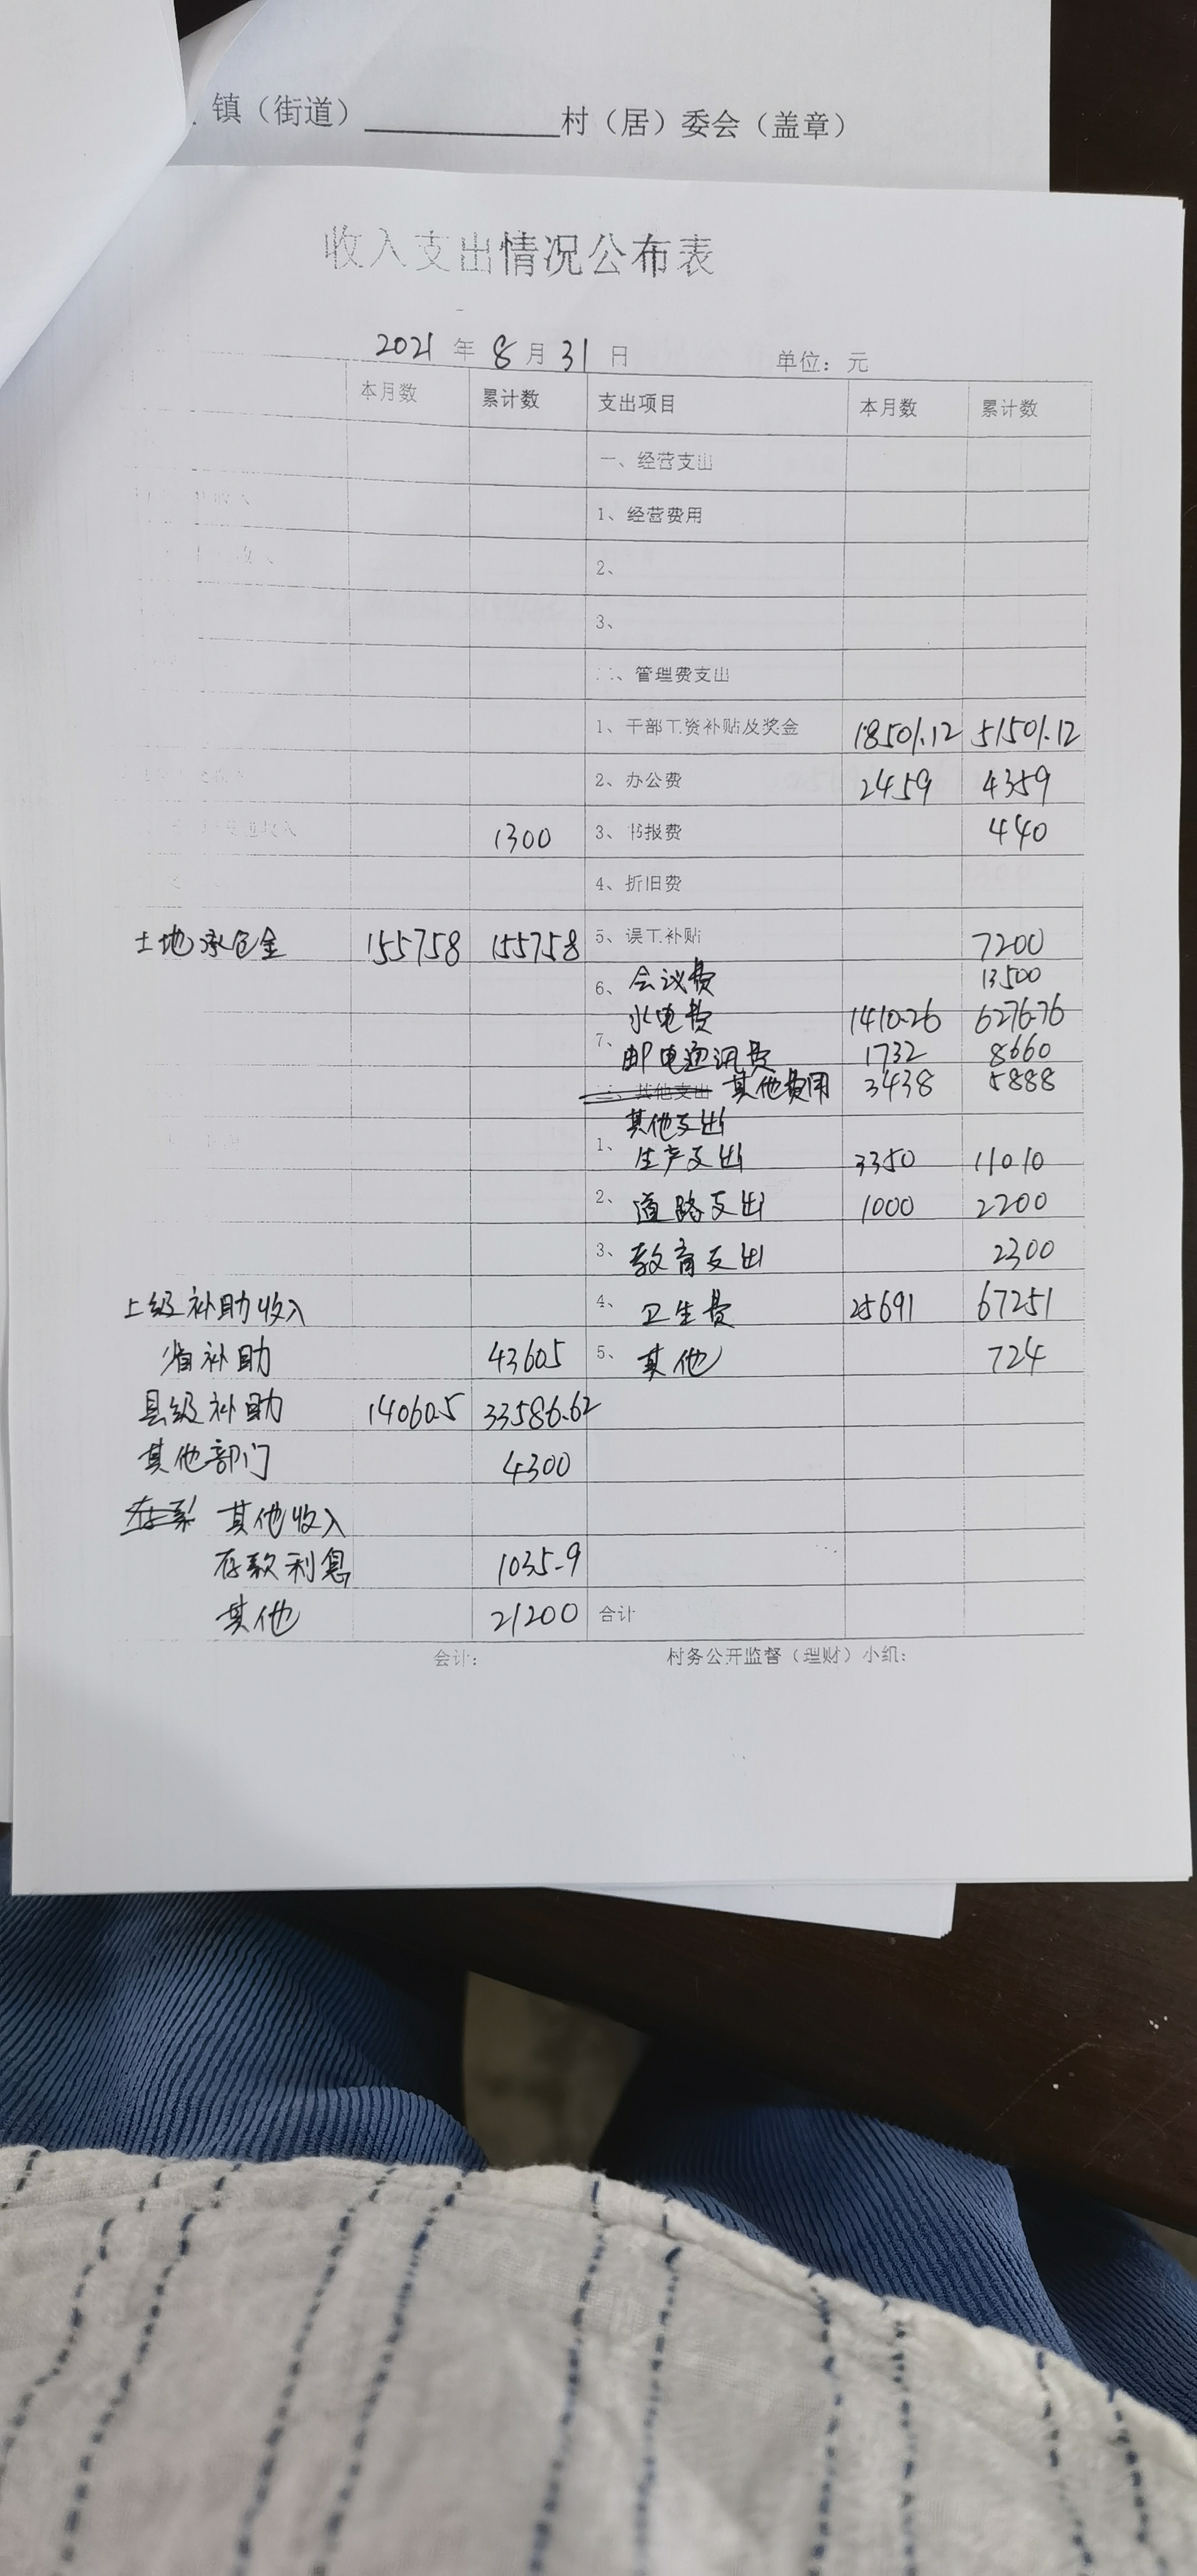 镇（街道）__________村（居）委会（盖章）
收入支出情况公布表
2021 年 8 月 31 日 单位：元
本月数 累计数 支出项目 本月数 累计数
一、经营支出
收入 1、经营费用
收入 2、
3、
、管理费支出
1、干部工资补贴及奖金 18501.12 51501.12
2、办公费 2459 4359
收入 1300 3、书报费 440
4、折旧费
土地承包金 155758 155758 5、误工补贴 7200
6、会议费 13500
水电费 1410.26 6276.76
7、邮电通讯费 1732 8660
其他支出 其他费用 3438 5888
其他支出
1、生产支出 3350 11010
2、道路支出 1000 2200
3、教育支出 2300
上级补助收入 4、卫生费 25691 67251
省补助 43605 5、其他 724
县级补助 14060.5 33586.62
其他部门 4300
其他收入
存款利息 1035.9
其他 21200 合计
会计： 村务公开监督（理财）小组：